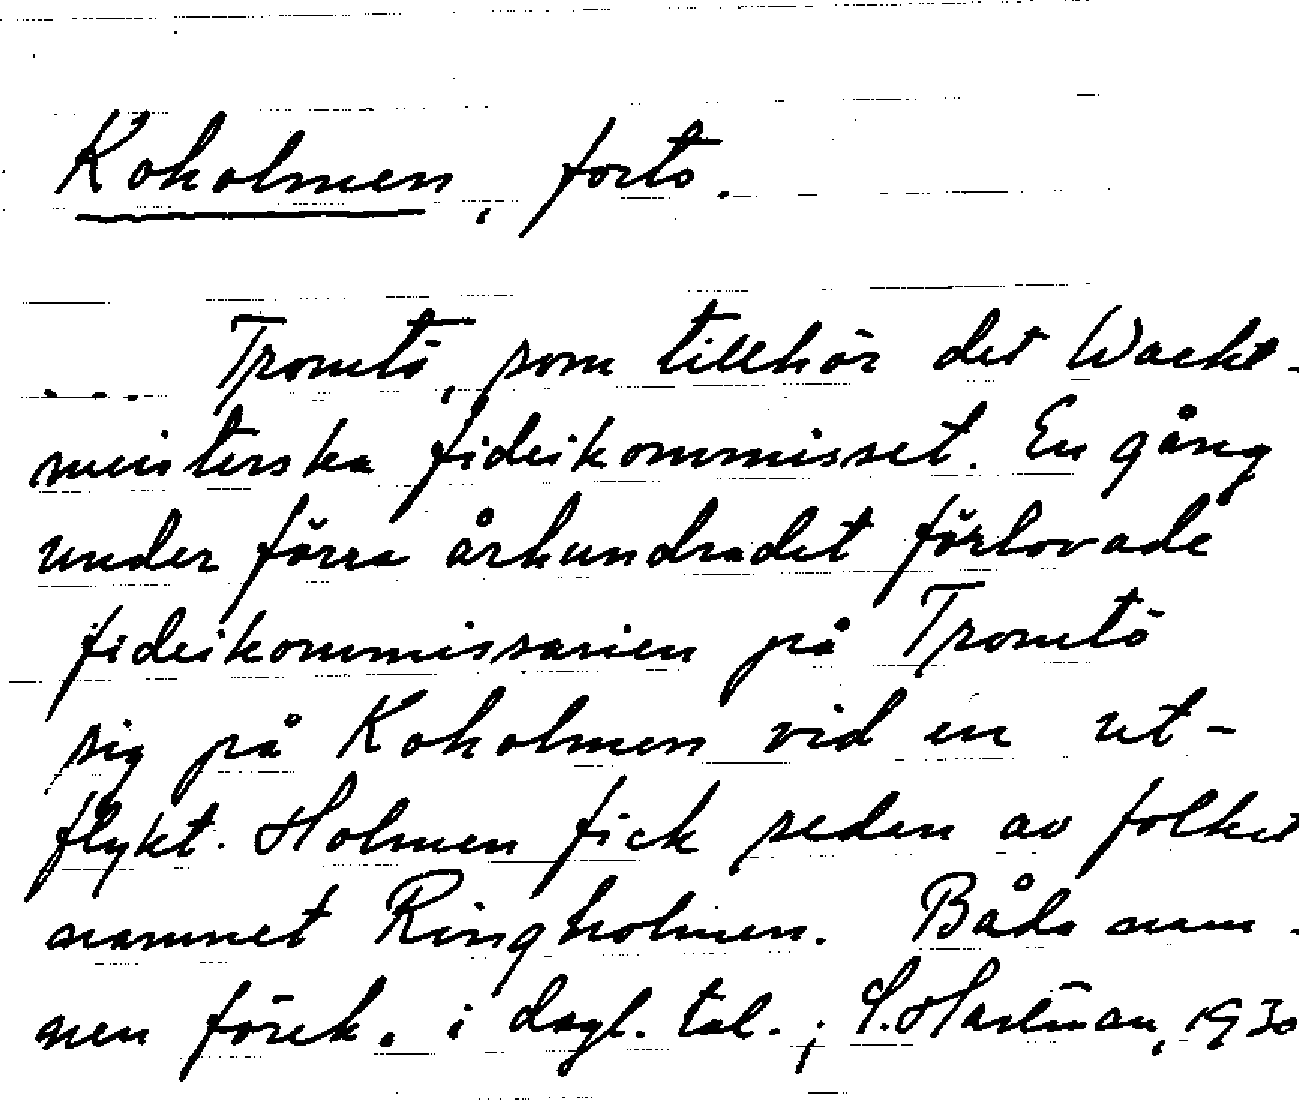 Koholmen, forts.
... Tromtö, som tillhör det Wacht-
meisterska fideikommisset. En gång
under förra århundradet förlovade
fideikommissarien på Tromtö
sig på Koholmen vid en ut-
flykt. Holmen fick sedan av folket
namnet Ringholmen. Båda nam-
nen förek. i dagl. tal. ; S. Hartman, 1930